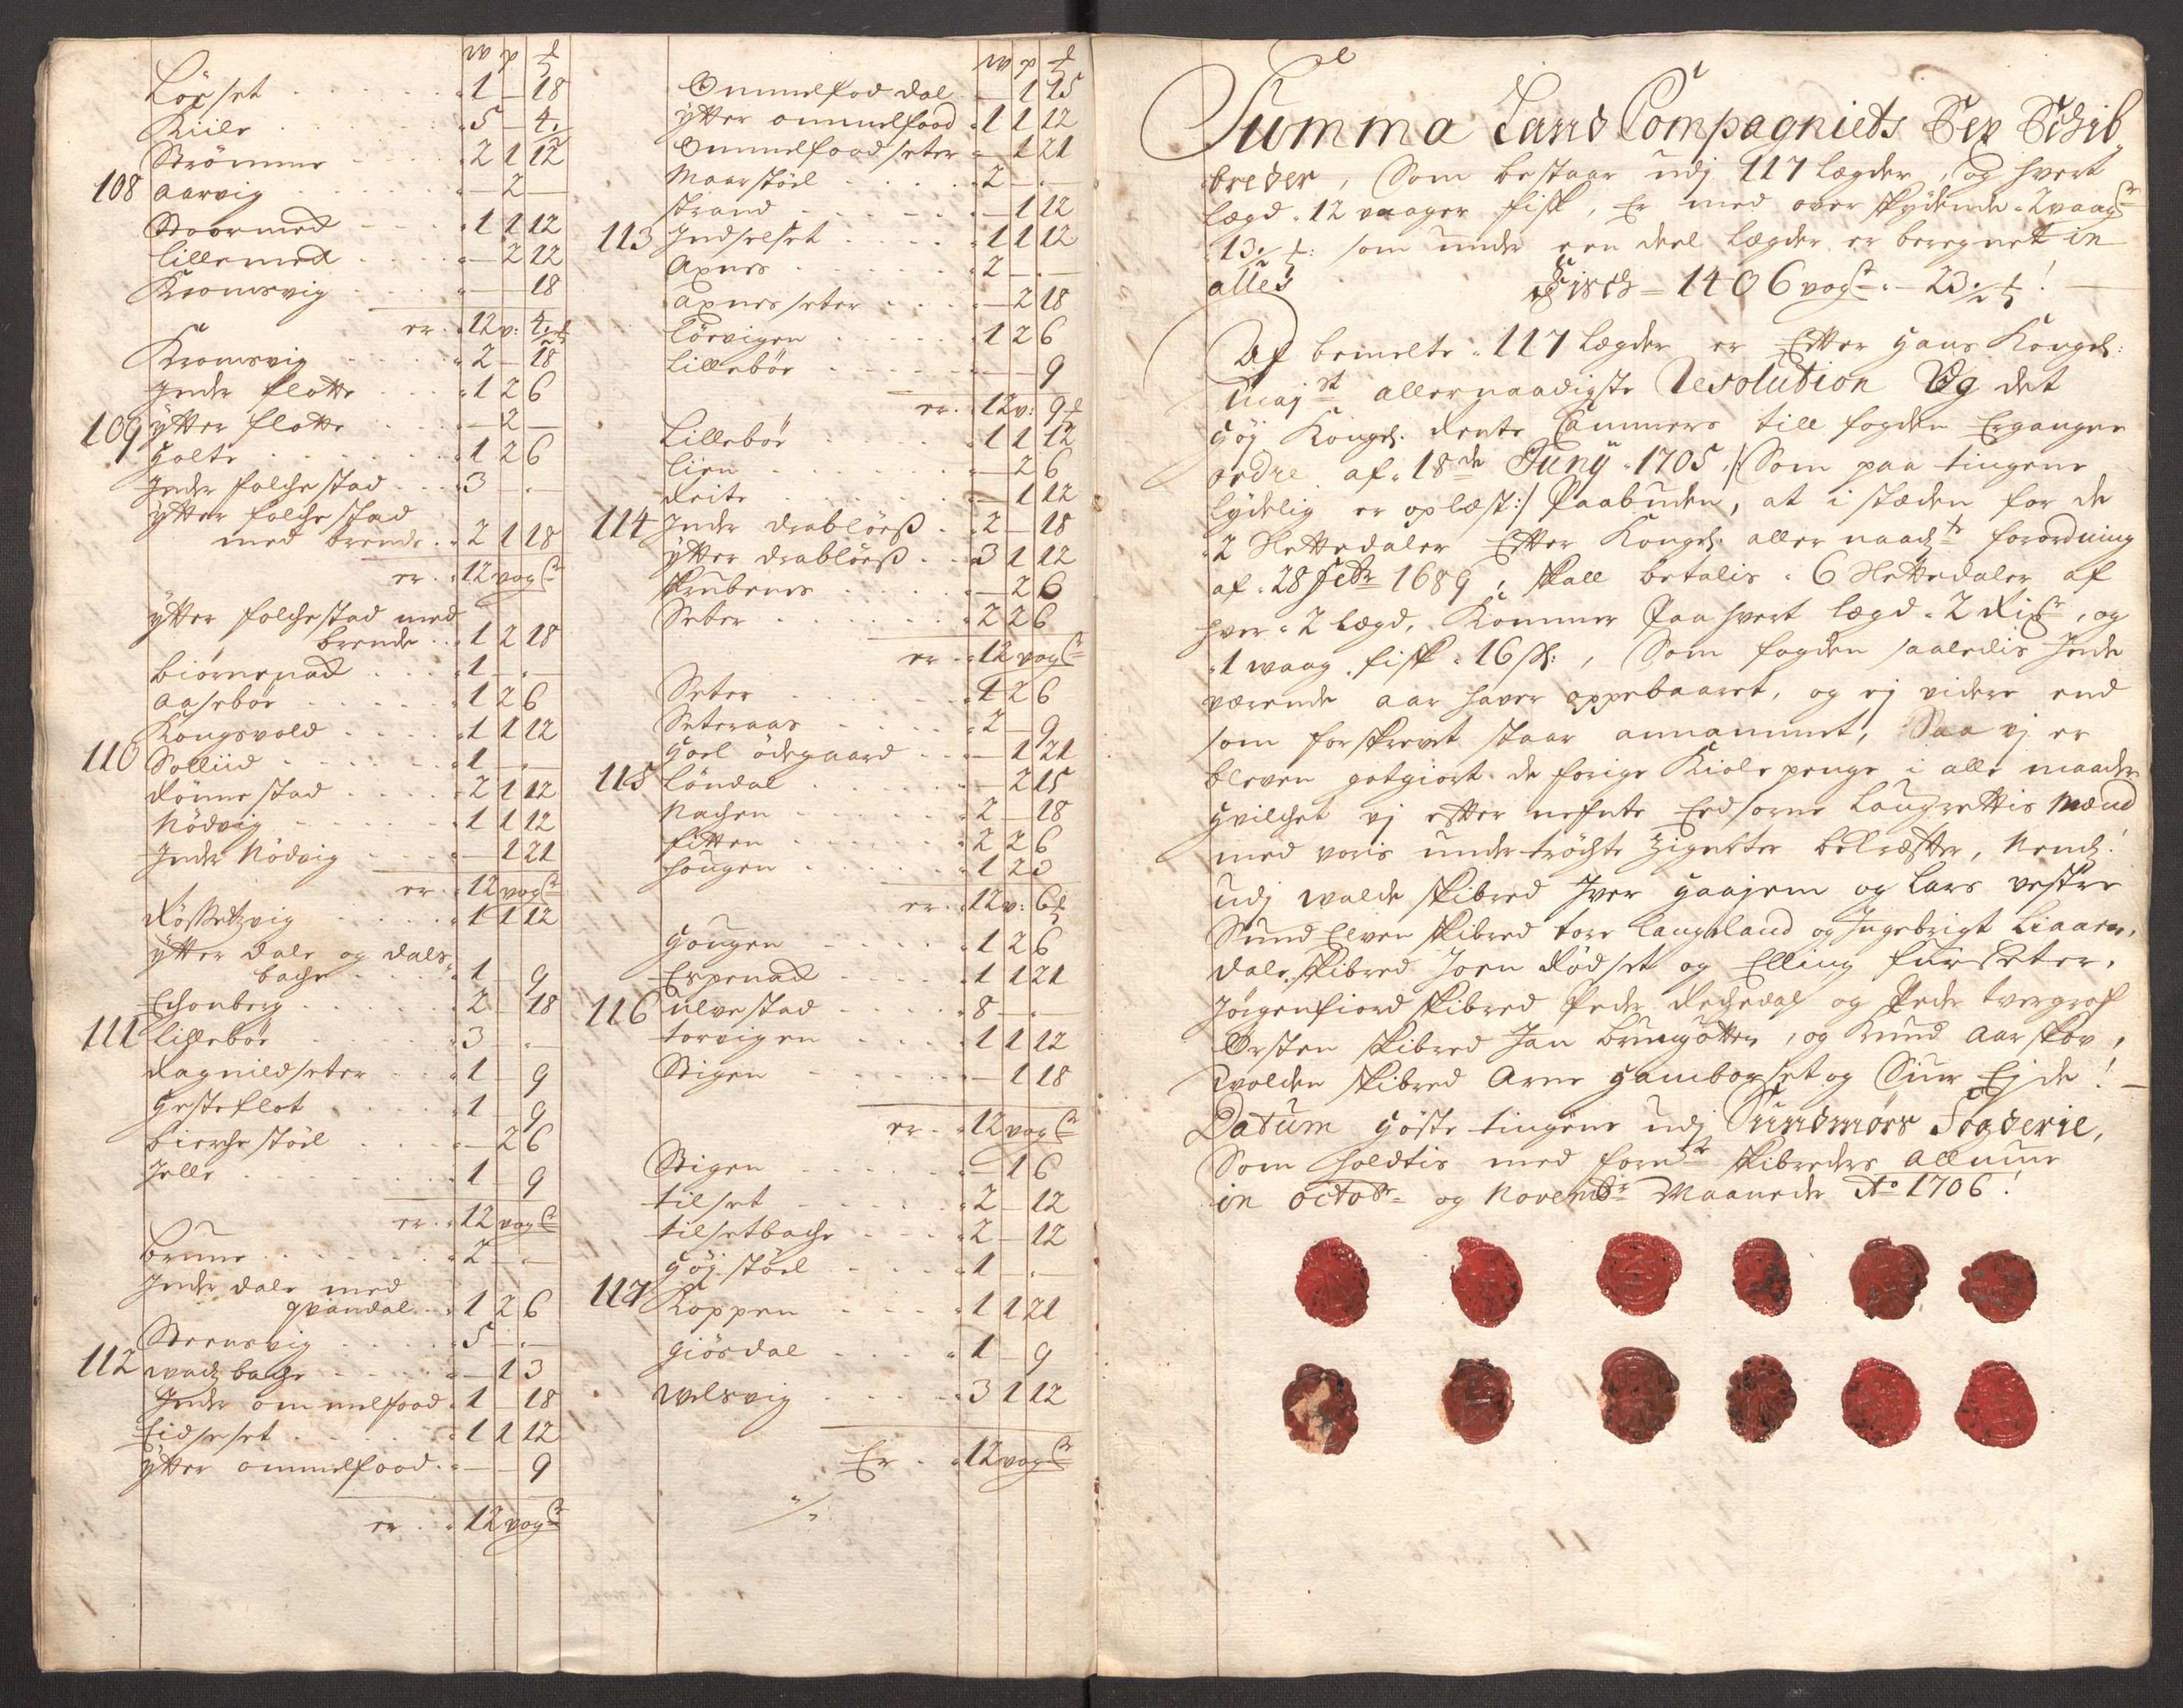 w p ℔
Löfset . . . 1 – 18
Kiile . . . 5 – 4½
Strömme . . . 2 1 12
108 Aarvig . . . – 2 –
Stoormed . . . 1 1 12
Lillemed . . . – 2 22
Kromsvig . . . – – 18
er . 12 v: 4½ ℔
Kromsvig . . . 2 – 18
Jndr flotte . . . 1 2 6
109 ytter flotte . . . – 2 –
Holte . . . 1 2 6
Jndr folchestad . . . 3 – –
ytter folchestad
med brende . . 2 1 18
er . 12 vogr
ytter folchestad med
brende . . 1 2 18
Biörnenad . . . 1 – –
Aasebör . . . 1 2 6
Kongsvold . . . 1 1 12
110 Solliid . . . 1 – –
Rönnestad . . . 2 1 12
Nödvig . . . 1 1 12
Jndr Nödvig . . . – 1 21
er . 12 vogr
Rössetzvig . . . 1 1 12
ytter dale og dals
bache . . . 1 – 9
Echonberg . . . 2 – 18
111 Lillebör . . . 3 – –
Ragnildseter . . . 1 – 9
Hesteflot . . . 1 – 9
Bierchestöel . . . – 2 6
Jelle . . . 1 – 9
er . 12 vogr
Brune . . . 2 – –
Jndr dale med
qvandal . . 1 2 6
Steensvig . . . 5 – –
112 wadzbache . . . – 1 3
Jndr ommelfood . 1 – 18
Eidseset . . . 1 1 12
ytter ommelfood . – – 9
er . . 12 vogr
w p ℔
Ommelfod dal . – 1 15
ytter ommelfood . 1 1 12
Ommelfoodseter . – 1 21
Maarstöel . . . 2 – –
strand . . . – 1 12
113 Jndselset . . . 1 1 12
Axnes . . . 2 – –
Axnesseter . . . – 2 18
Lörvigen . . . 1 2 6
Lillebör . . . – – 9
er . 12 v: 9 ℔
Lillebör . . . 1 1 12
Lien . . . – 2 6
Reite . . . – 1 12
114 Jndr drablöeß . . 2 – 18
ytter drablöeß . . 3 1 12
Skrubenes . . . – 2 6
Seter . . . 2 2 6
er . 12 vogr
Seter . . . 1 2 6
Seteraas . . . 2 – 9
Hoel ödegaard . . – 1 21
115 Löndal . . . – 2 15
Nachen . . . 2 – 18
fitten . . . 2 2 6
Hougen . . . 1 2 3
er . 12 v: 6 ℔
Hougen . . . 1 2 6
Espenad . . . 1 1 21
116 ulvestad . . . 8 – –
torvigen . . . 1 1 12
Stigen . . . – 1 18
er . . 12 vogr
Stigen . . . – 1 6
tilset . . . 2 – 12
tilsetbache . . . 2 – 12
Höj stöel . . . 1 – –
117 Koppen . . . 1 1 21
Giösdal . . . 1 – 9
Welsvig . . . 3 1 12
Er . . 12 vogr
Summa Land Compagniets Sex Schib
breder, Som bestaar udj 117 lægder, og hvert
lægd 12 vaager fisk, Er med overskydende 2 vaagr
13½ ℔: som under een deel lægder er beregnet in
alles Fisch – 1406 vogr – 23½ ℔!
Af bemelte 117 lægder er Efter Hans Kongel:
Majst allernaadigste Resolution Og det
Höj Kongel: Rente Cammers till fogden Ergangne
ordre af 18de Junÿ 1705 /: Som paa tingene
lydelig er oplæst :/ Paabuden, at i stæden for de
2 Slettedaler Efter Kongel: aller naadte forordning
af 28 Febr 1689, skall betalis 6 Slettedaler af
hver 2 lægd, Kommer Paa hvert lægd 2 Rixr, og
1 waag fisk 16 sk:, Som fogden saaledis Jnde
værende aar haver oppebaaret, og ej videre end
som forskrevet staar annammet, Saa ej er
bleven gotgiort de forige Kiole penge i alle maader
Hvilchet vj efter nefnte Eedsorne Laugrettis Mænd
med voris undertröchte Zignetter bekræfter, Neml:
udj walde skibred Jver Gaajem og Lars vestre
Sund Elven skibred tore Langeland og Jngebrigt Liaaen,
Dale skibred Joen Rödset og Elling furseter,
Jörgenfiord skibred Peder Rechedal og Peder tvergroff
Orsten skibred Jan Brungötten, og Knud Aarskov,
Wolden skibred Arne Hamborset og Siur Ejde! –
Datum Höste tingene udj Sundmörs Fogderie,
Som holdtis med fornte skibreders Allmue
in octobr og Novembr Maaneder Ao 1706!